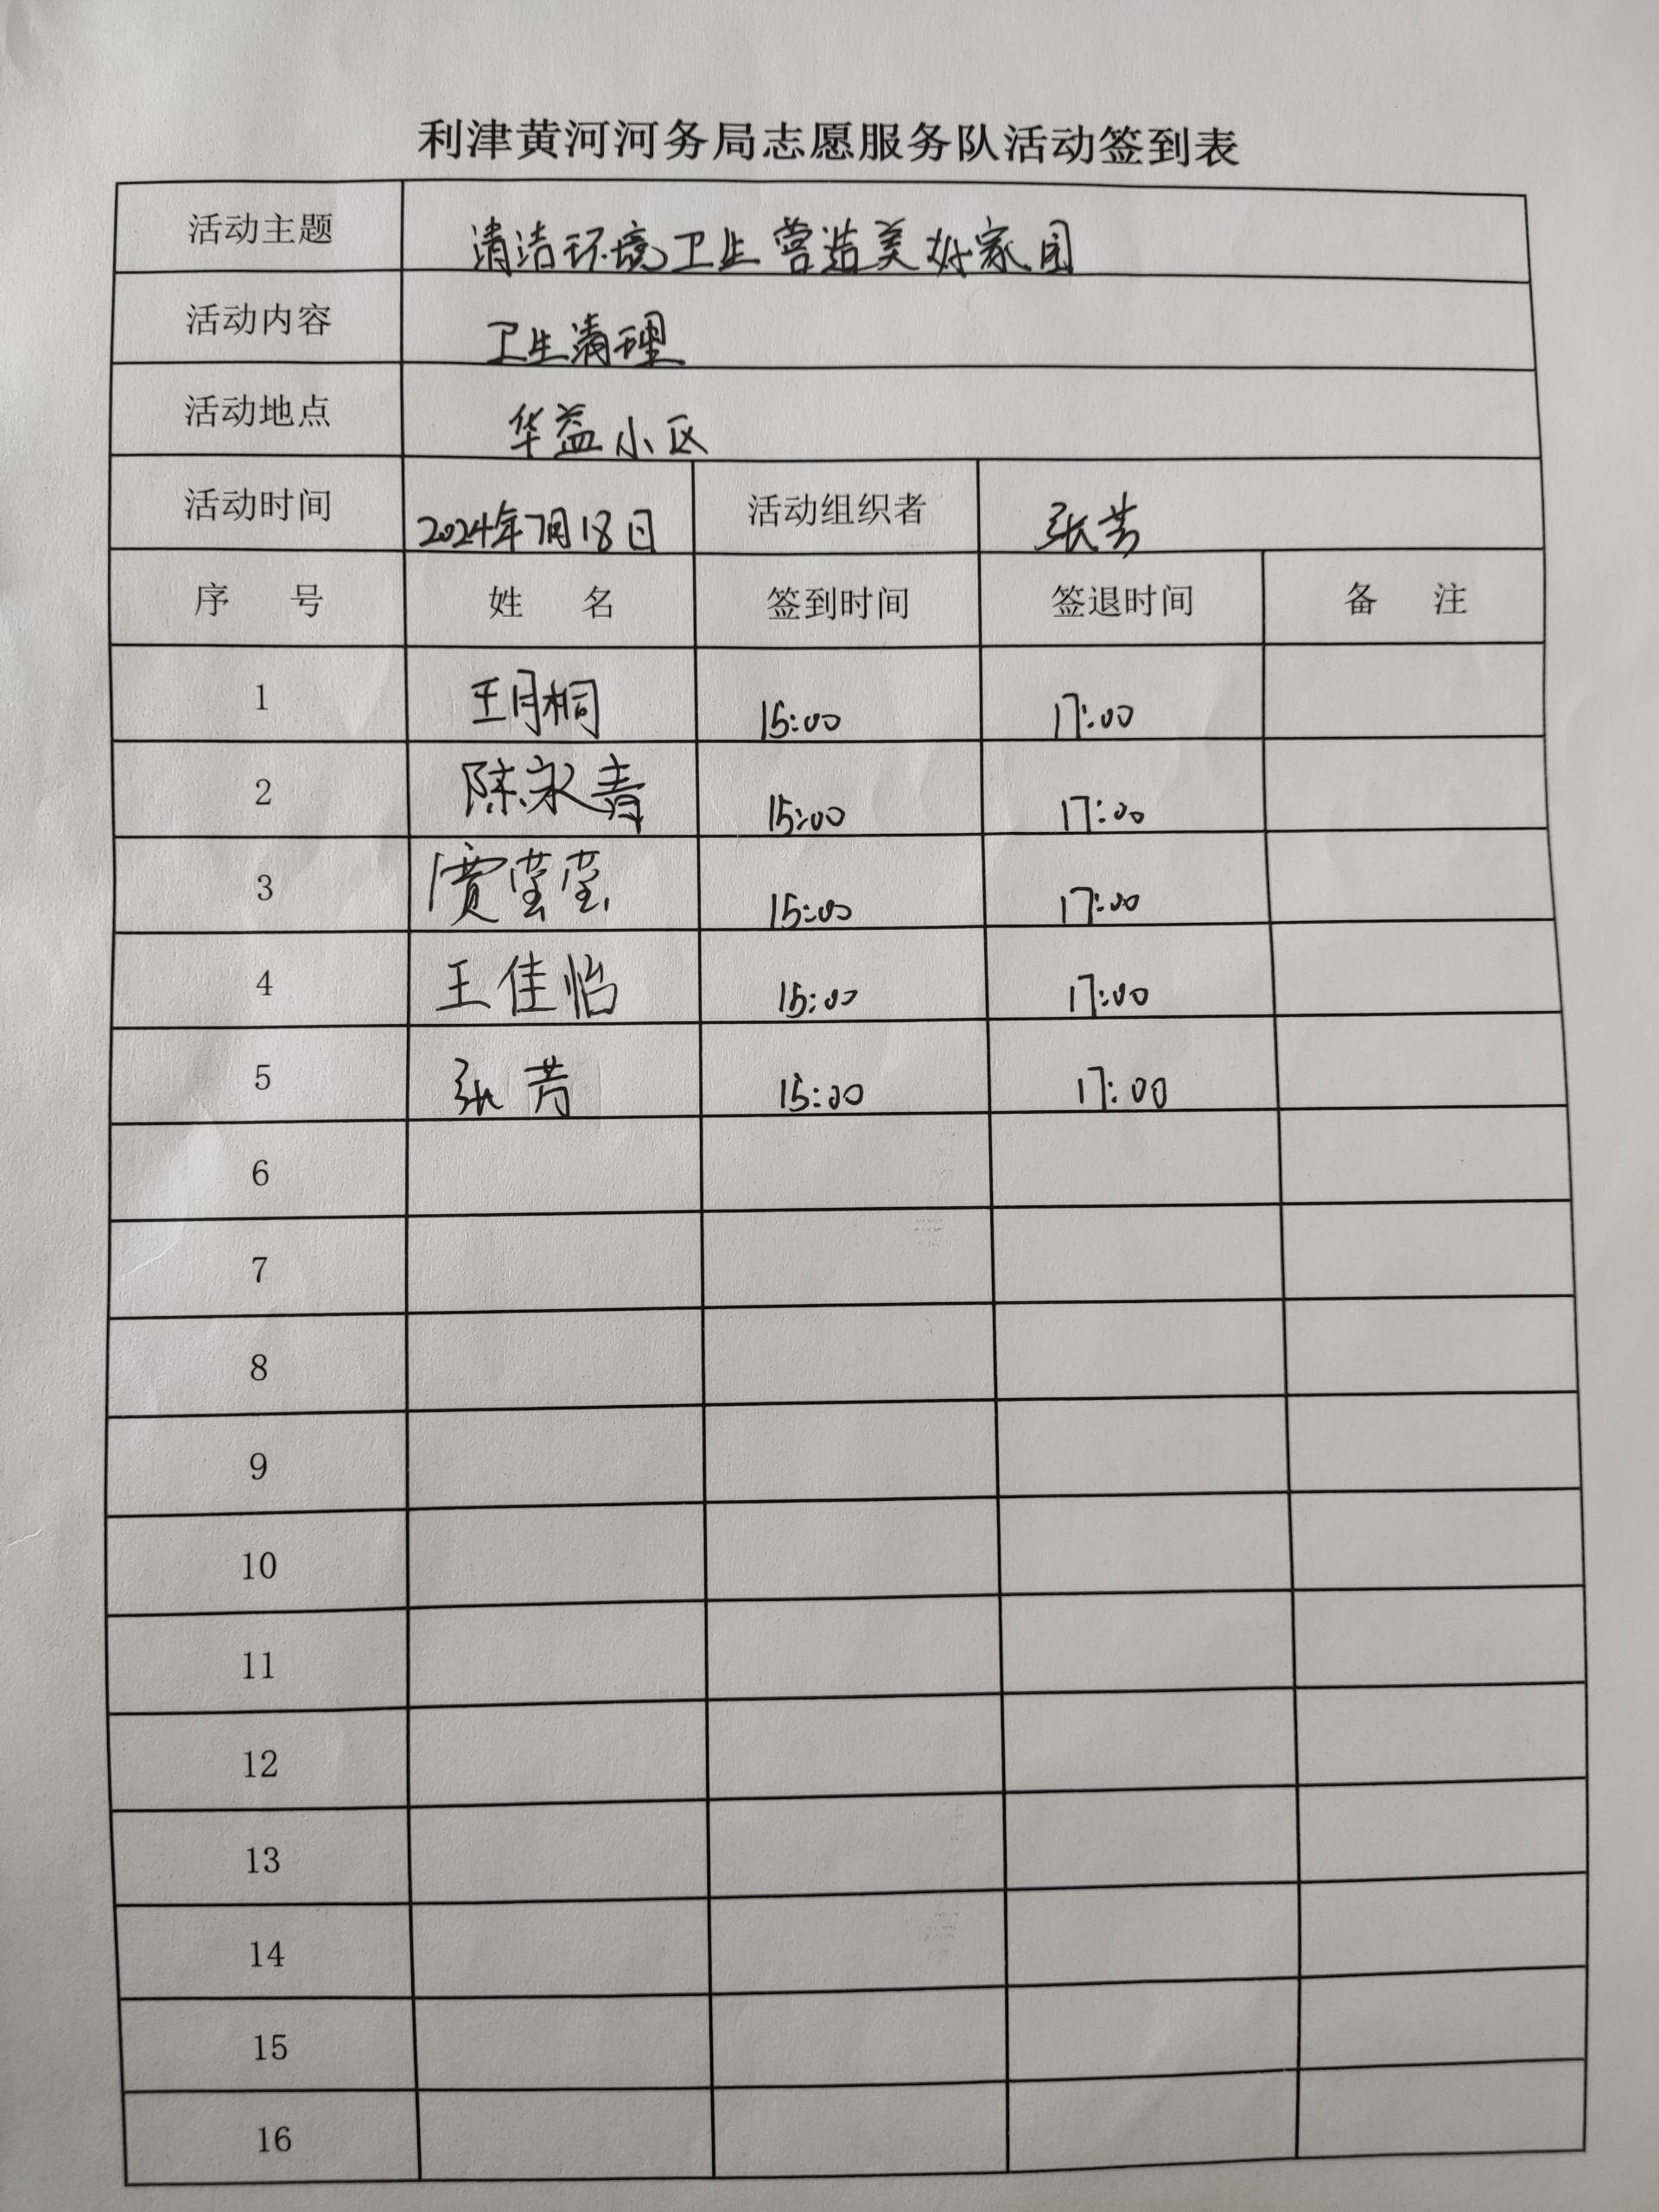 利津黄河河务局志愿服务队活动签到表
活动主题 清洁环境卫生 营造美好家园
活动内容 卫生清理
活动地点 华益小区
活动时间 2024年7月18日 活动组织者 张芳
序 号 姓 名 签到时间 签退时间 备 注
1 王月桐 15:00 17:00
2 陈永青 15:00 17:00
3 贾莹莹 15:00 17:00
4 王佳怡 15:00 17:00
5 张芳 15:00 17:00
6
7
8
9
10
11
12
13
14
15
16